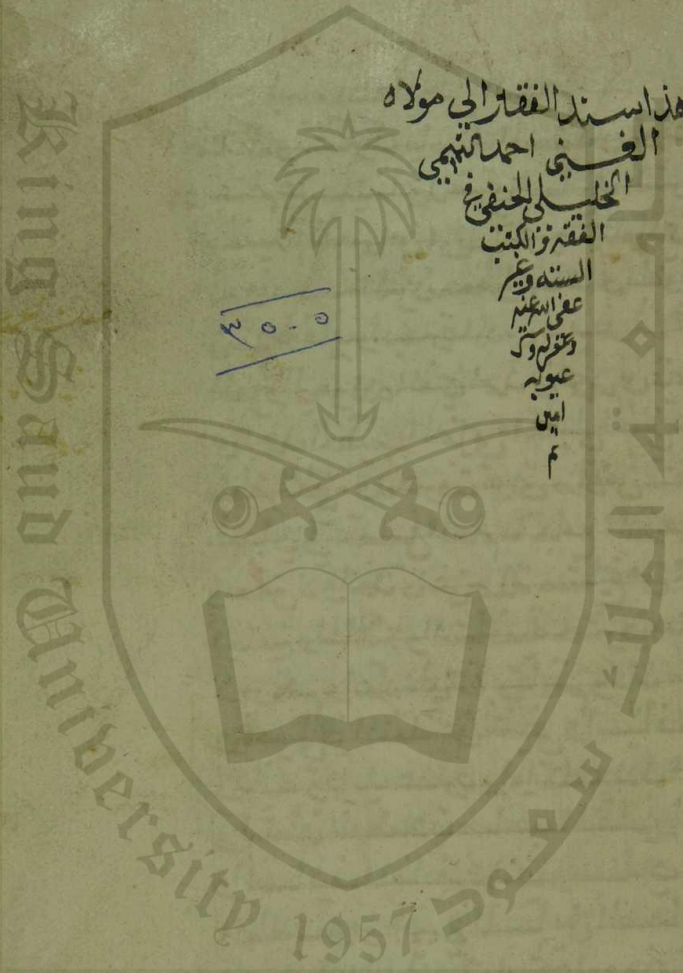 هذا سند الفقير الي مولاه
الغني احمد التميمي
الخليلي الحنفي في
الفقه و الكتب
السته وغير
عفى الله عنه
وغفر له وستر
عيوبه
امين
م
٣٥٠٥
King Saud University 1957
جامعة الملك سعود